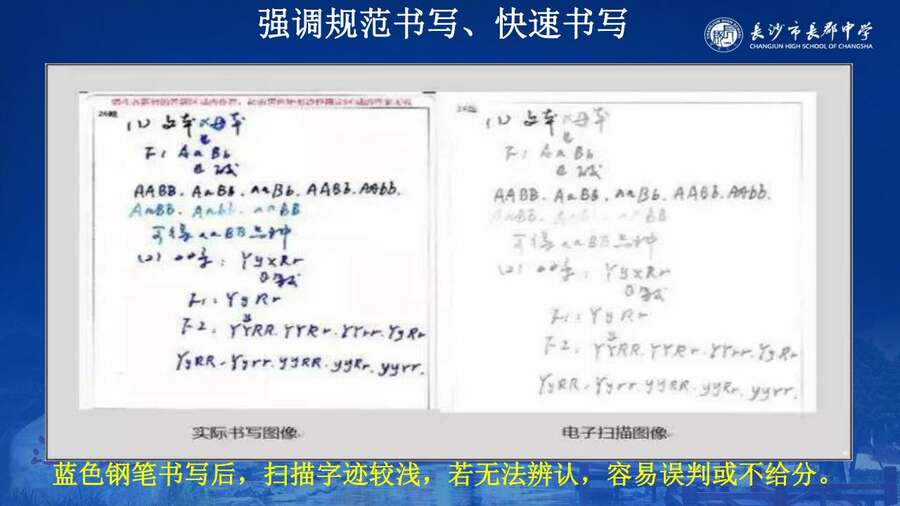 强调规范书写、快速书写
長沙市長郡中学
CHANGJUN HIGH SCHOOL OF CHANGSHA
26题
(1) 父本×母本
F1: AaBb
AABB. AaBB. aaBb. AABb. AAbb.
AaBB. Aabb. aaBB
可得aaBB品种
(2) YyRr
F1: YyRr
F2: YYRR. YYRr. YYrr. YyRr
YyRR. Yyrr. yyRR. yyRr. yyrr.
26题
(1) 父本×母本
F1: AaBb
AABB. AaBB. aaBb. AABb. AAbb.
AaBB. Aabb. aaBB
可得aaBB品种
(2) YyRr
F1: YyRr
F2: YYRR. YYRr. YYrr. YyRr
YyRR. Yyrr. yyRR. yyRr. yyrr.
实际书写图像
电子扫描图像
蓝色钢笔书写后，扫描字迹较浅，若无法辨认，容易误判或不给分。